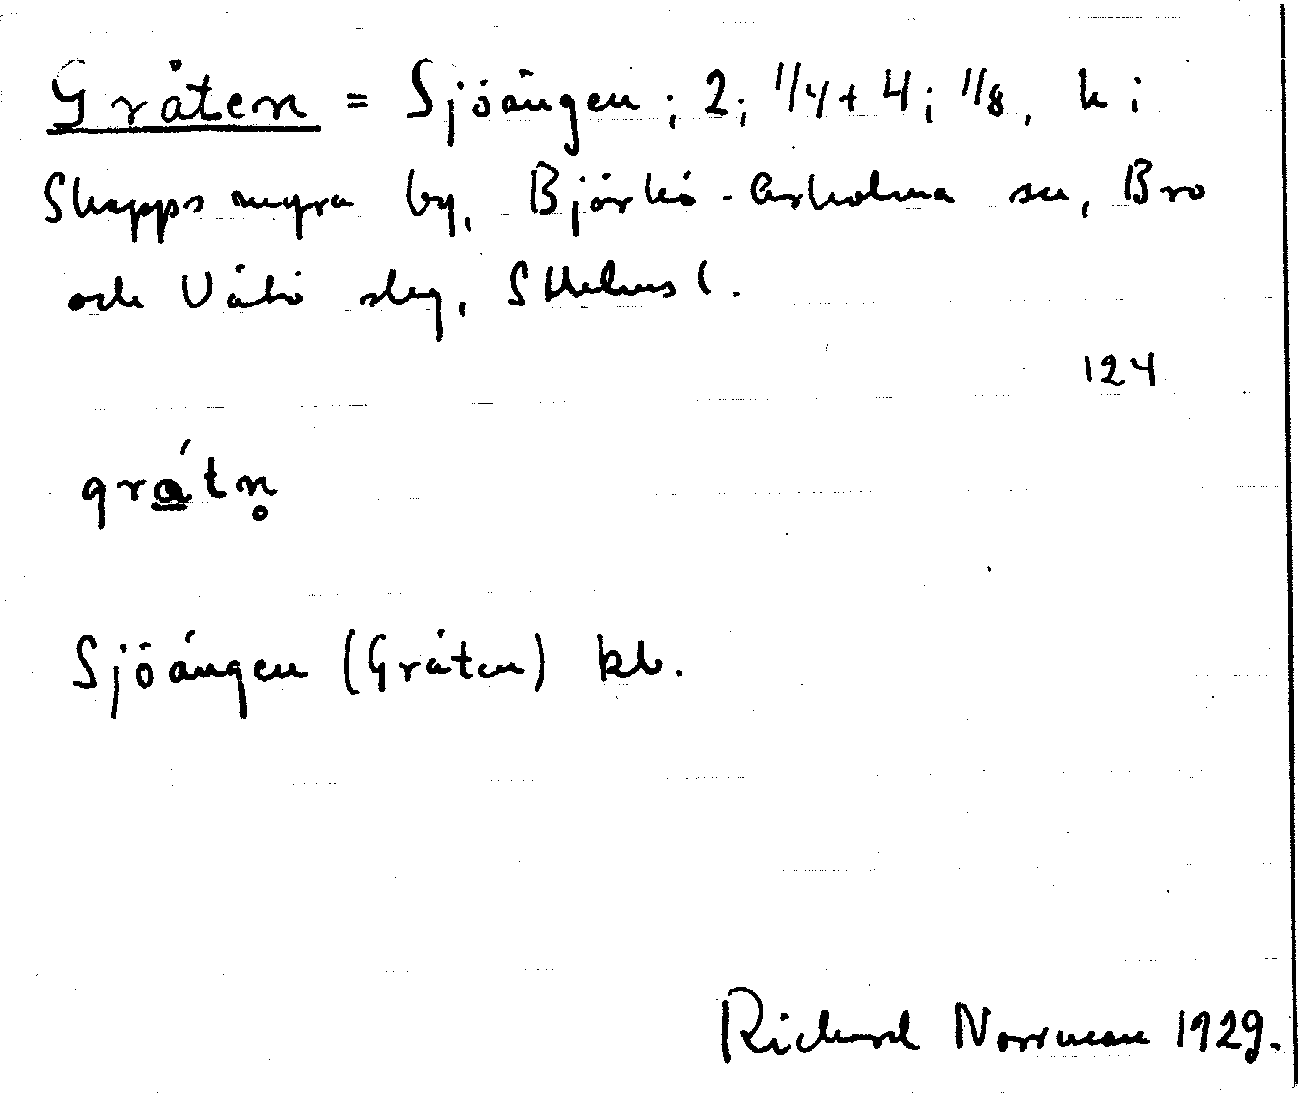 Gråten = Sjöängen; 2; 1/4 + 4; 1/8, h i
Skeppsmyra by, Björkö-Arholma sn, Bro
och Vätö skg, Sthlms l.
124
grátn̥
Sjöängen (Gråten) kb.
Richard Norrman 1929.